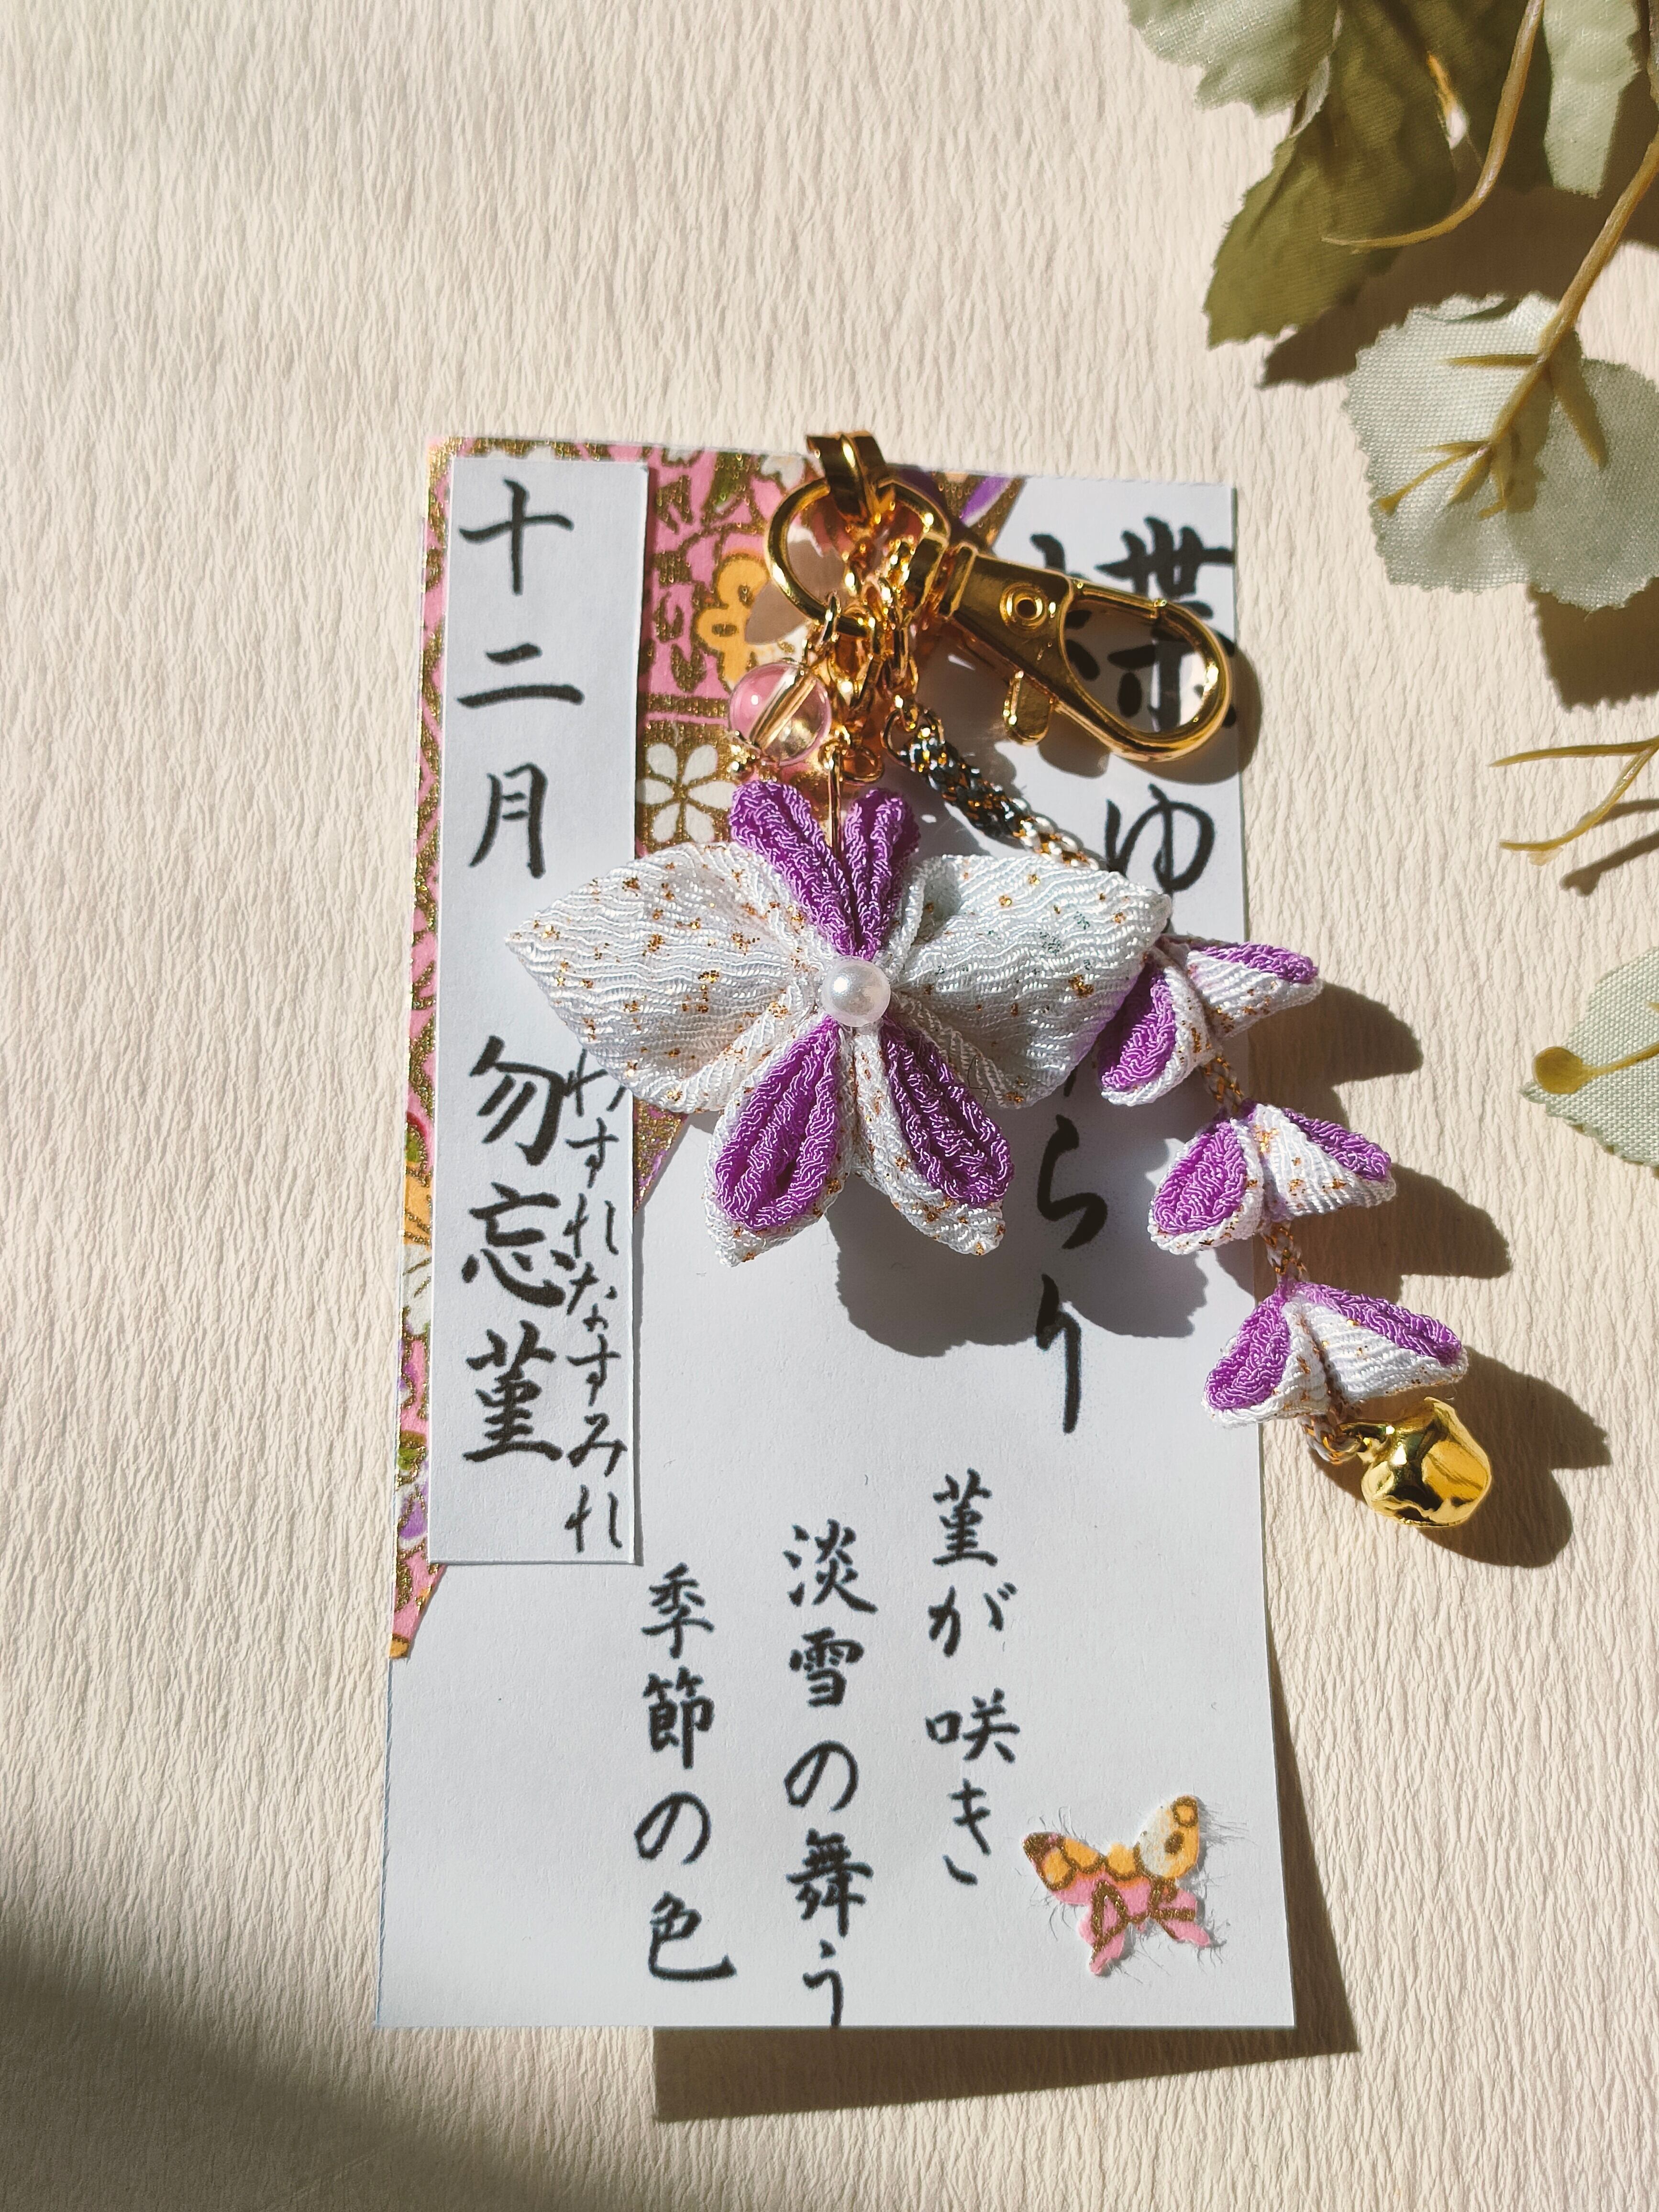 蝶ゆ
らり
菫が咲き
淡雪の舞う
季節の色
十二月 勿忘菫
わすれなすみれ